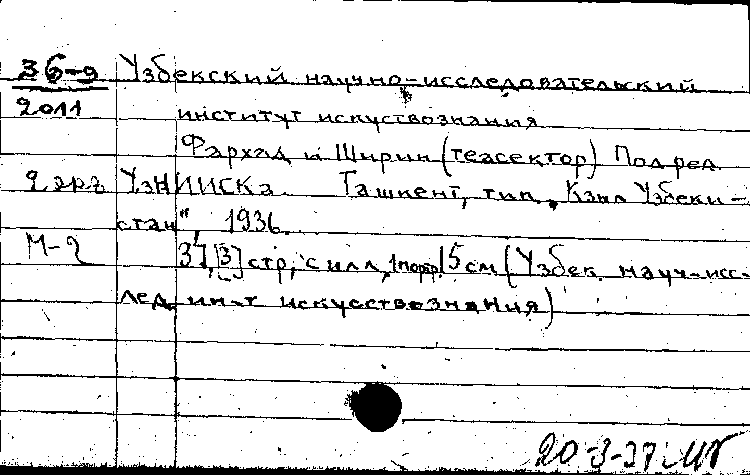 36-9 Узбекский научно-исследовательский
2011 институт искуствознания
Фархад и Ширин (теасектор) Под ред.
2 экз УзНИИСКа. Ташкент, тип. „Кзил Узбеки-
стан", 1936.
М-2 37, [3] стр, с илл, 1 портр 15 см (Узбек. науч-исс-
лед. ин-т искусствознания)
20-3-37